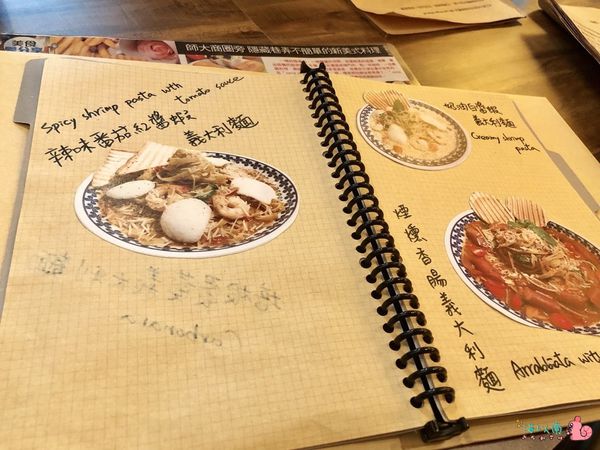 美食
師大商圈旁 隱藏巷弄不簡單的新美式料理
spicy shrimp pasta with
tomato sauce
辣味番茄紅醬蝦
義大利麵
Carbonara
奶油白醬蝦
義大利麵
Creamy shrimp
pasta
煙燻香腸義大利麵
Arrabbiata with